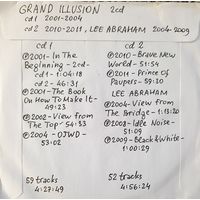 GRAND ILLUSION 2cd
cd 1 2001-2004
cd 2 2010-2011, LEE ABRAHAM 2004-2009
cd 1
℗2001- In The
Beginning - 2cd-
cd 1 - 1:04:18
cd 2 - 46:31
℗2001- The Book
On How To Make It
- 49:23
℗2002- View from
The Top - 54:53
℗2004 - OJWD -
53:02
59 tracks
4:27:49
cd 2
℗2010- Brave New
World - 51:54
℗2011- Prince Of
Paupers - 59:20
LEE ABRAHAM
℗2004- View from
The Bridge - 1:13:20
℗2008- Idle Noise-
51:09
℗2009- Black&White-
1:00:29
52 tracks
4:56:24